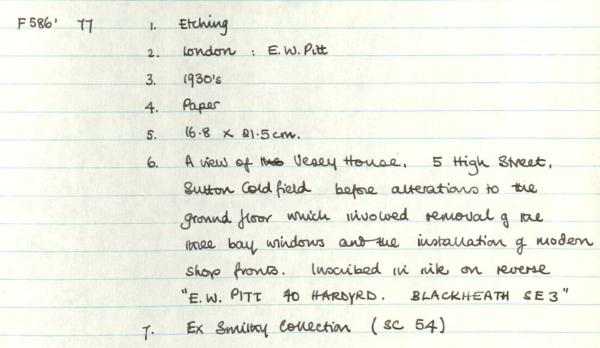 F586' 77 1. Etching
2. London : E.W. Pitt
3. 1930's
4. Paper
5. 16.8 x 21.5cm.
6. A view of the Vesey House, 5 High Street,
Sutton Coldfield before alterations to the
ground floor which involved removal of the
three bay windows and the installation of modern
shop fronts. Inscribed in ink on reverse
"E.W. PITT 40 HARDYRD. BLACKHEATH SE3"
7. Ex Collection (SC 54)